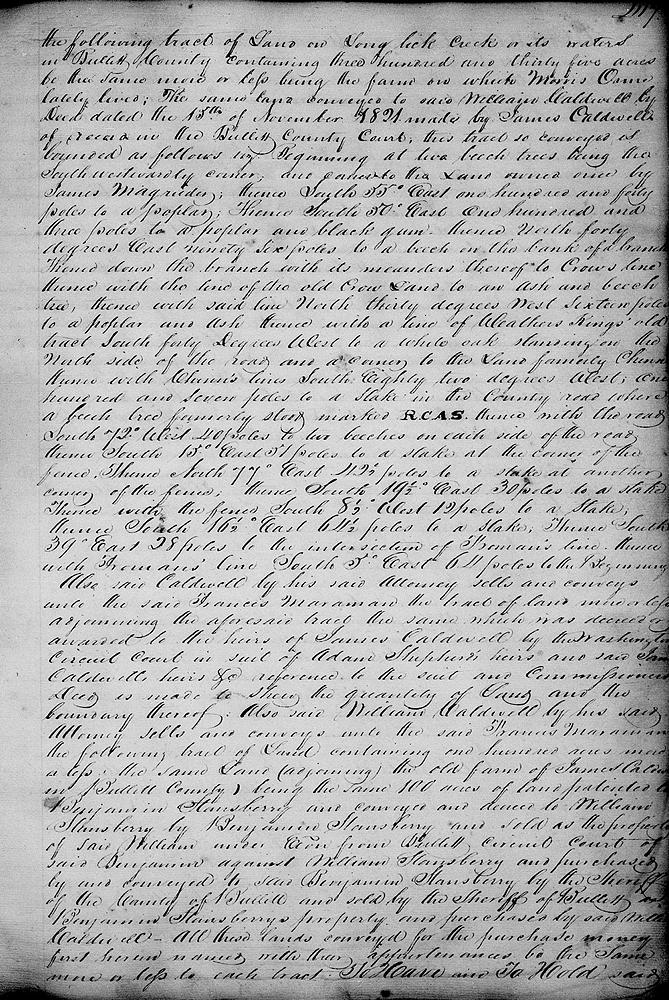 the following tract of Land on Long lick Creek or its waters
in Bullitt County containing three hundred and thirty five acres
be the same more or less being the farm on which Morris
lately lived; The same land conveyed to said William Caldwell by
Deed dated the 15th of November 1821 made by James Caldwell
of record in the Bullitt County Court; this tract so conveyed is
bounded as follows viz Beginning at two beech trees being the
South westwardly corner, and corner to the Land owned once by
James Magruder; thence South 55° East one hundred and forty
poles to a poplar; Thence South 50° East One hundred and
three poles to a poplar and black gum. thence North forty
degrees East ninety six poles to a beech on the bank of a branch
Thence down the branch with its meanders thereof to Crows line
thence with the line of the old Crow Land to an Ash and beech
tree, thence with said line North thirty degrees West Sixteen poles
to a poplar and Ash thence with a line of Weathers Kings' old
tract South forty Degrees West to a white oak standing on the
North side of the road and a corner to the Land formerly
thence with lines South Eighty two degrees West; One
hundred and seven poles to a stake in the County road where
a beech tree formerly stood marked R.C.A.S. thence with the road
South 72° West 40 poles to two beeches on each side of the road
thence South 15° East 51 poles to a stake at the corner of the
fence. Thence North 77° East 42½ poles to a stake at another
corner of the fence; thence South 19½° East 30 poles to a stake
Thence with the fence South 8½° West 12 poles to a stake,
thence South 16½° East 64½ poles to a stake; Thence South
39° East 28 poles to the intersection of Froman's line. thence
with Fromans' line South 5° East 64 poles to the Beginning
Also said Caldwell by his said Attorney sells and conveys
unto the said Francis Maraman the tract of land more or less
adjoining the aforesaid tract the same which was decreed &
awarded to the heirs of James Caldwell by the Washington
Circuit Court in suit of Adam Shepherd's heirs and said James
Caldwells heirs &c reference to the suit and Commissioners
Deed is made to shew the quantity of Land and the
boundary thereof: Also said William Caldwell by his said
Attorney sells and conveys unto the said Francis Maraman
the following tract of Land containing one hundred acres more
or less; the same Land (adjoining) the old farm of James Caldwell
in Bullitt County) being the same 100 acres of land patented to
Benjamin Stansberry and conveyed and deeded to William
Stansberry by Benjamin Stansberry and sold as the property
of said William under from Bullitt Circuit Court of
said Benjamin against William Stansberry and purchased
by and conveyed to said Benjamin Stansberry by the Sheriff
of the County of Bullitt and sold by the Sheriff of Bullitt as
Benjamin Stansberrys property and purchased by said William
Caldwell - All these lands conveyed for the purchase money
first herein named with their appurtenances be the same
more or less to each tract. To Have and To Hold said